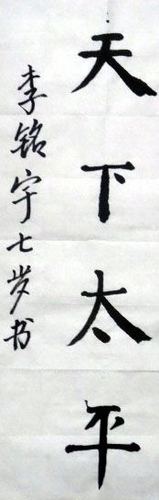 天下太平
李铭宇七岁书